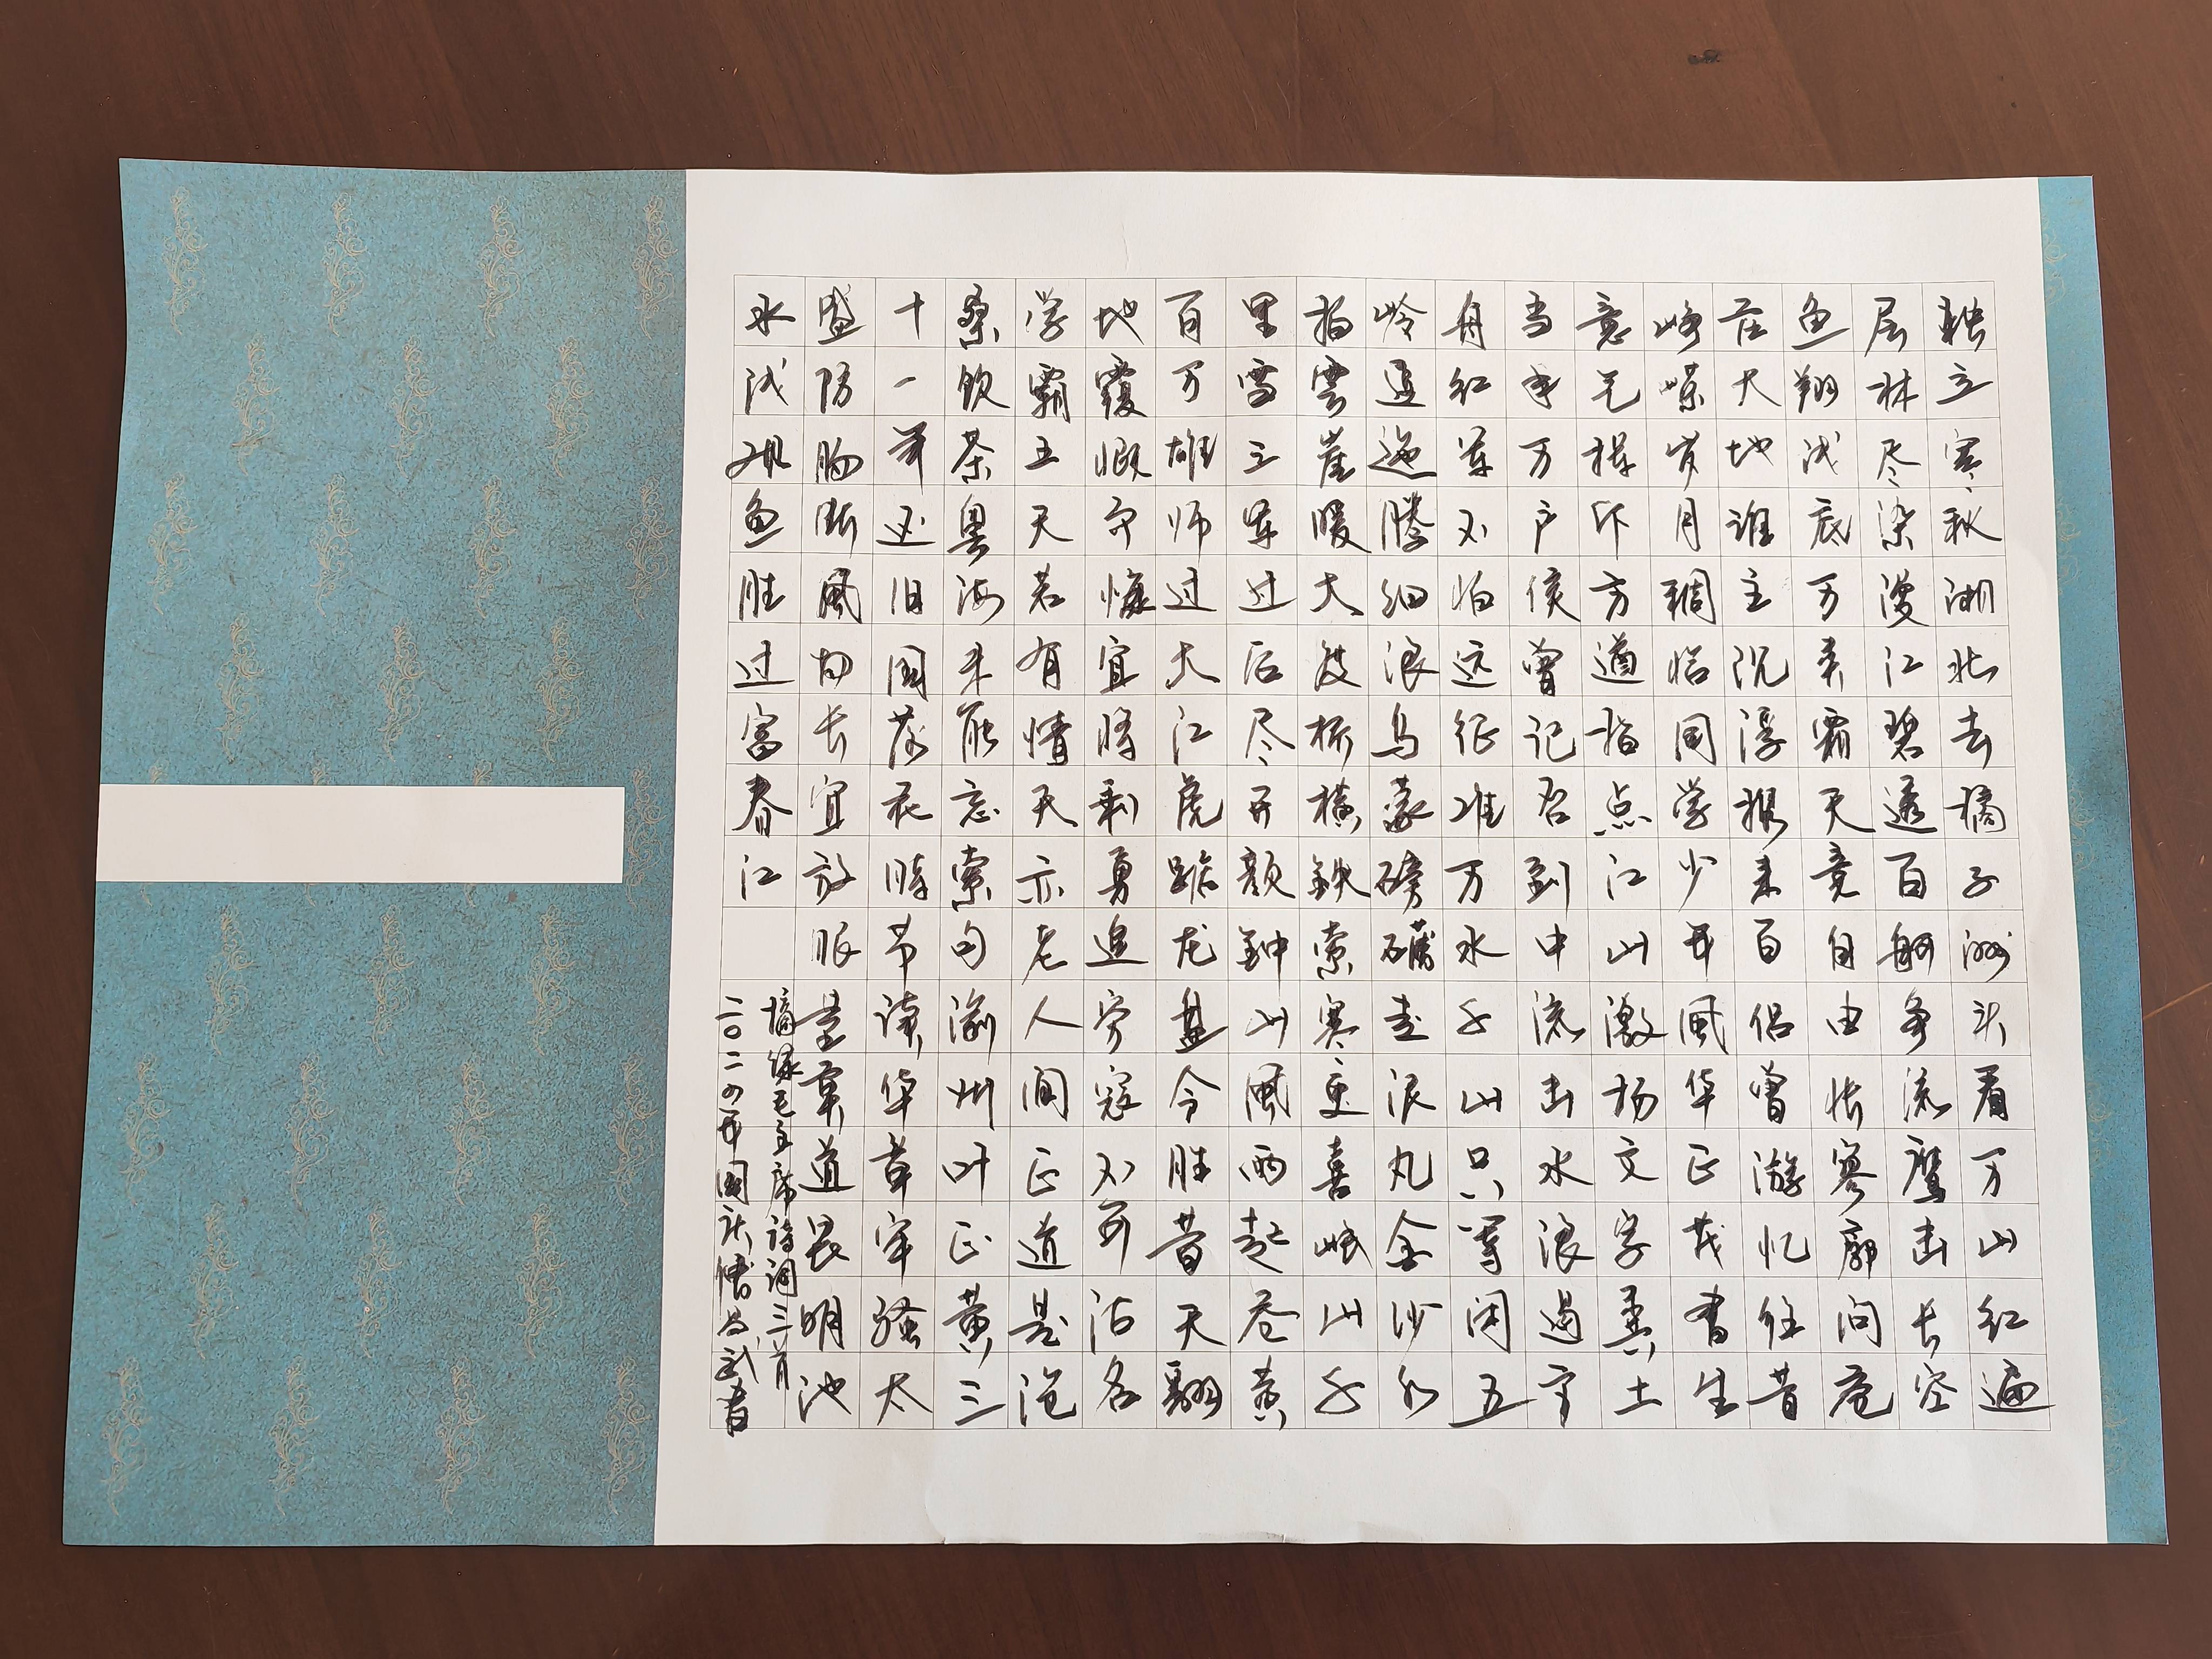 独立寒秋湘北去橘子洲头看万山红遍
层林尽染漫江碧透百舸争流鹰击长空
鱼翔浅底万类霜天竞自由怅寥廓问苍
茫大地谁主沉浮携来百侣曾游忆往昔
峥嵘岁月稠恰同学少年风华正茂书生
意气挥斥方遒指点江山激扬文字粪土
当年万户侯曾记否到中流击水浪遏飞
舟红军不怕远征难万水千山只等闲五
岭逶迤腾细浪乌蒙磅礴走泥丸金沙水
拍雲崖暖大渡桥横铁索寒更喜岷山千
里雪三军过后尽开颜钟山风雨起苍黄
百万雄师过大江虎踞龙盘今胜昔天翻
地覆慨而慷宜将剩勇追穷寇不可沽名
学霸王天若有情天亦老人间正道是沧
桑饮茶粤海未能忘索句渝州叶正黄三
十一年还旧国落花时节读华章牢骚太
盛防肠断风物长宜放眼量莫道昆明池
水浅观鱼胜过富春江
摘录毛主席诗词三首
二〇二四年国庆武书